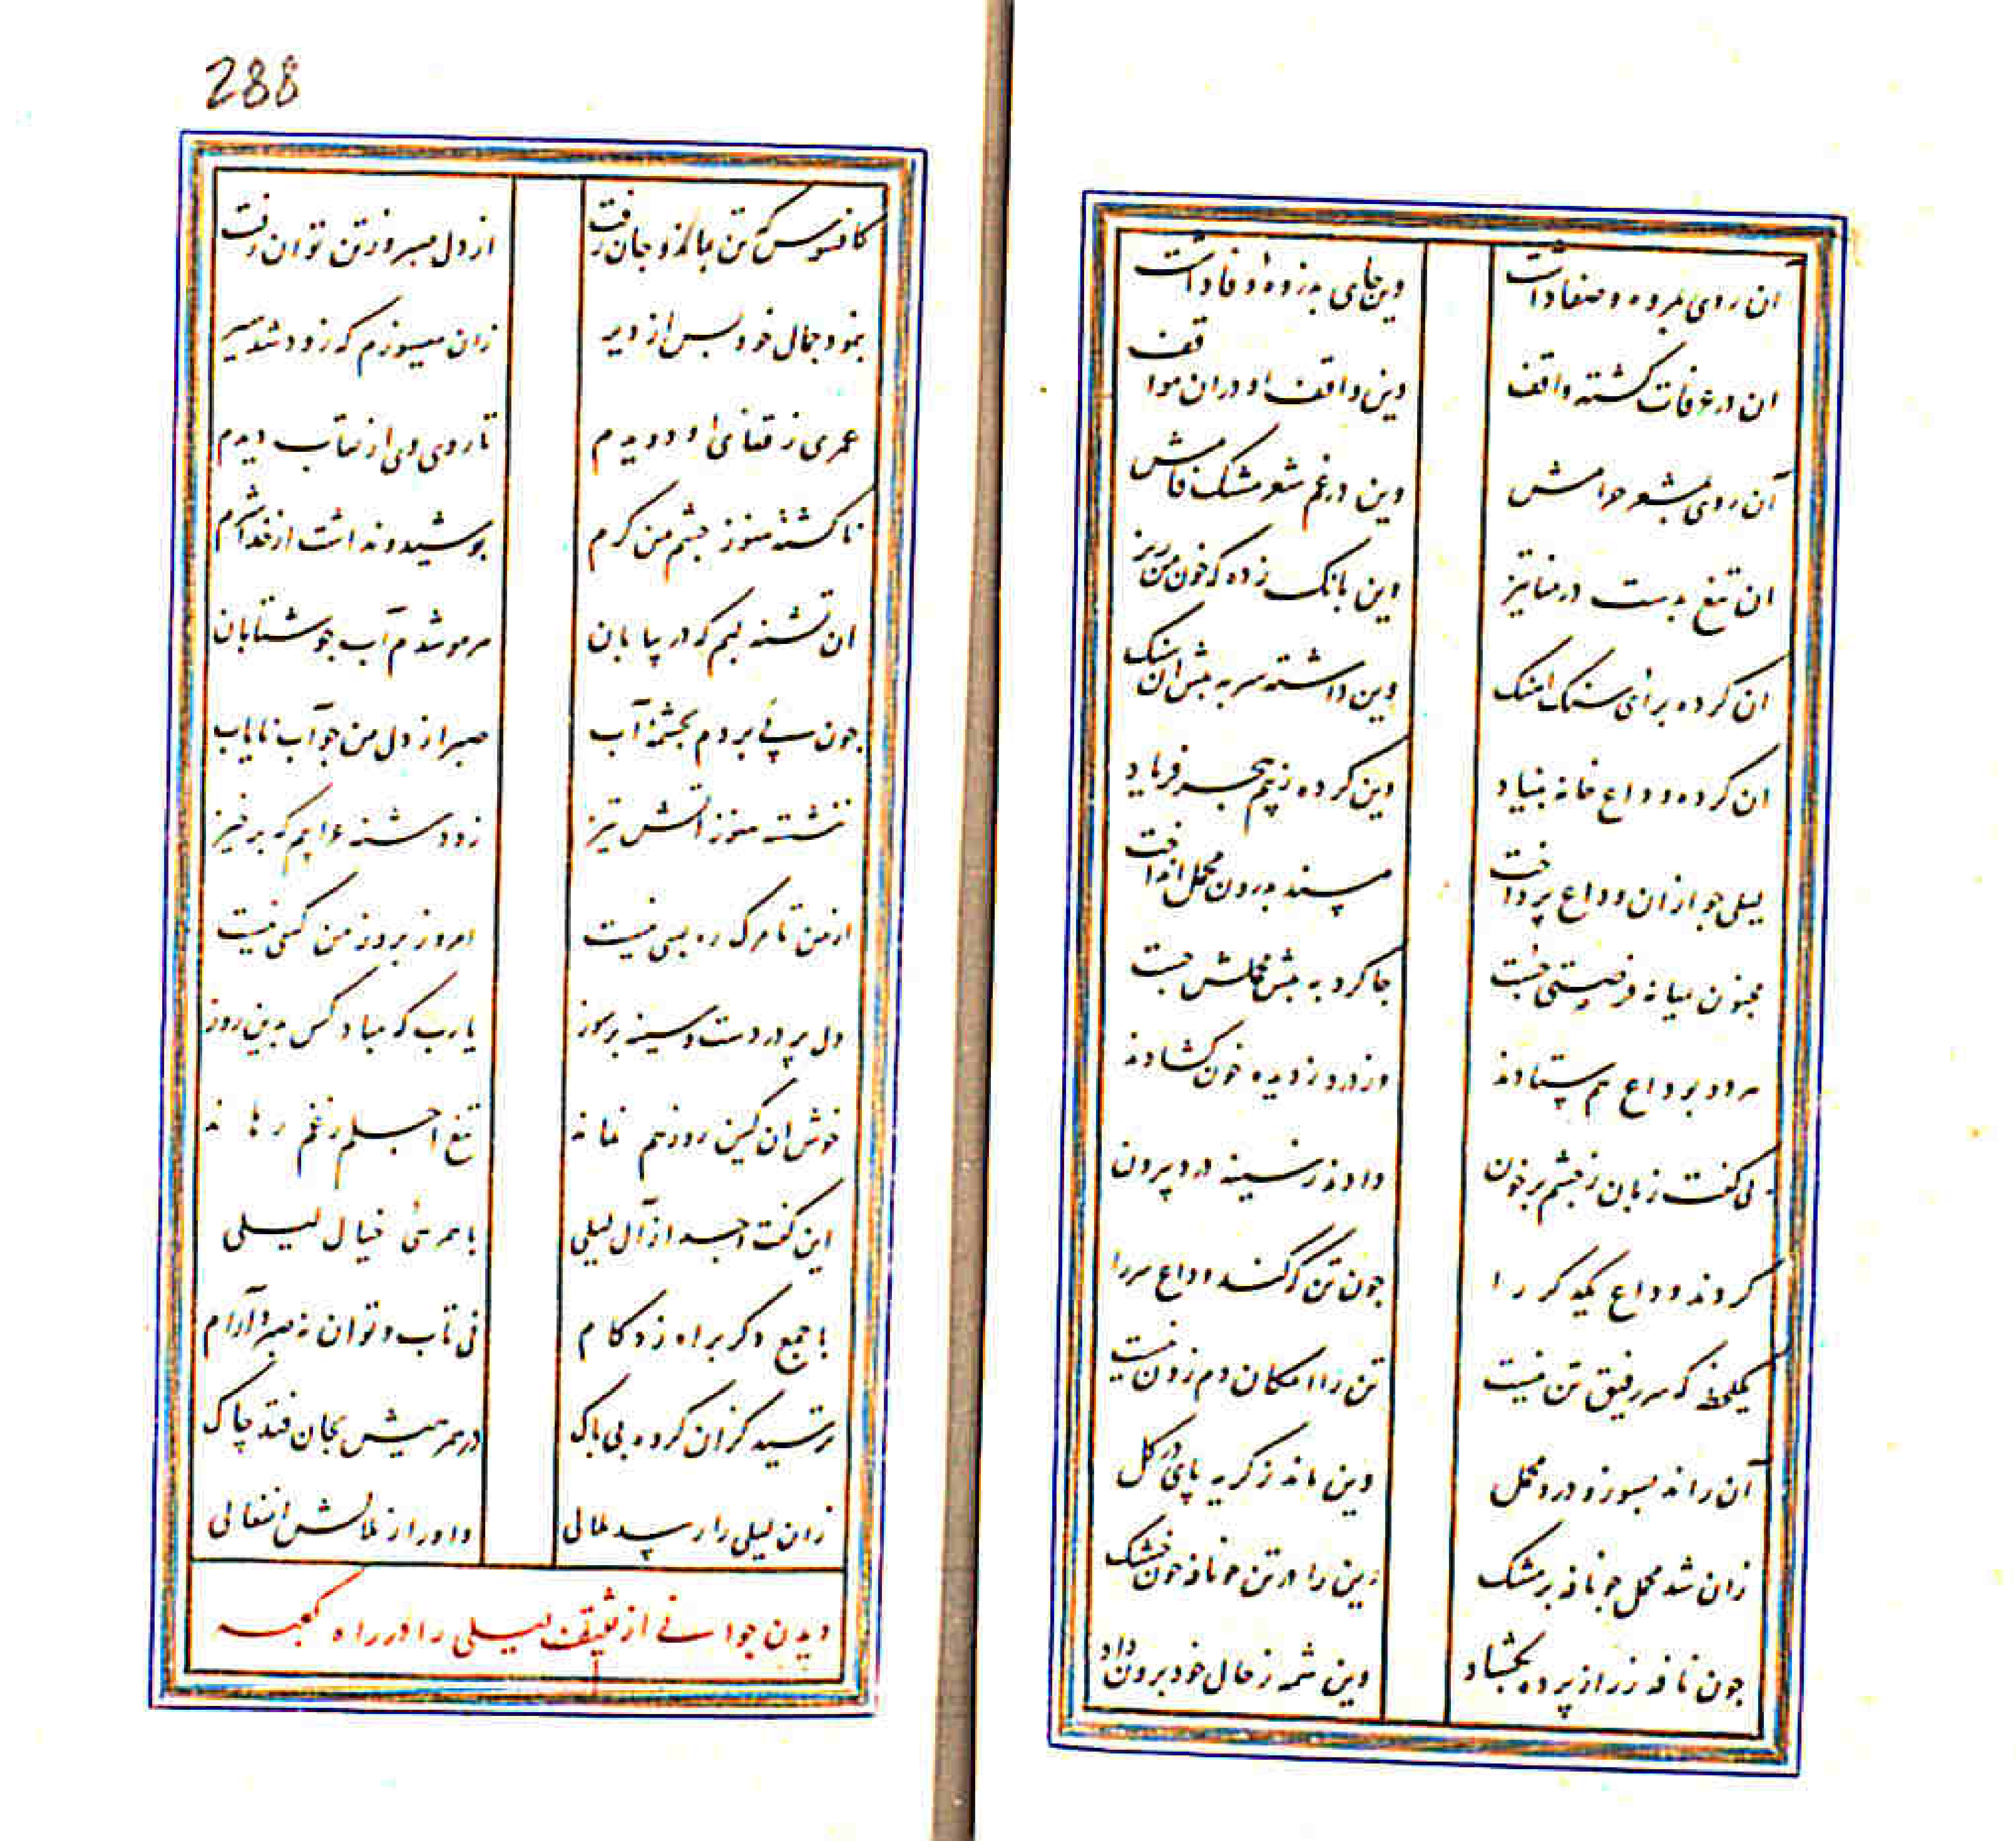 ان روی بمروه و صفا داشت
وین جای بذروه وفا داشت
ان در عرفات کشته واقف
وین واقف او دران مواقف
آن روی بمشعر حرامش
وین در غم شعر مشک فامش
ان تیغ بدست در منا تیز
وین بانک زده که خون من ریز
ان کرده برای سنک اهنک
وین داشته سر به پیش ان سنک
ان کرده وداع خانه بنیاد
وین کرده ز بیم هجر فریاد
لیلی جو ازان وداع پرداخت
مسند بدرون محمل انداخت
مجنون میانه فرصتی جست
جا کرد به پیش محملش جست
هر دو بوداع هم ستادند
وز درد ز دیده خون کشادند
بی کفت زبان ز جشم پر خون
دادند ز سینه درد بیرون
کردند وداع یکدکر را
جون تن که کند وداع سر را
یکلحظه که سر رفیق تن نیست
تن را امکان دم زدن نیست
آن راند بسوز و درد محمل
وین ماند ز کریه پای در کل
زان شد محمل جو نافه پر مشک
وین را در تن جو نافه خون خشک
جون نافه زر از پرده بکشاد
وین شمه ز حال خود برون داد
288
کافسوس که تن بماند و جان رفت
از دل صبر و ز تن توان رفت
بنمود جمال خود پس از دیر
زان میسوزم که زود شد سیر
عمری ز قفای او دویدم
تا روی وی از نقاب دیدم
ناکشته هنوز جشم من کرم
پوشید و نداشت از خدا شرم
ان تشنه لبم که در بیابان
هر سو شدم آب جو شتابان
جون پی بردم بجشمه آب
صبر از دل من جو آب نایاب
ننشسته هنوز اتش تیز
زد دشنه هوایم که برخیز
از من تا مرک ره بسی نیست
امروز بروز من کسی نیست
دل پر دردست و سینه پر سوز
یارب که مباد کس بدین روز
خوش ان کین روز هم نماند
تیغ اجلم ز غم رهاند
این کفت و جدا از آل لیلی
با همرهی خیال لیلی
با جمع دکر براه زد کام
نی تاب و توان نه صبر و آرام
ترسید کزان کروه بی باک
در همرهیش بجان فتد چاک
زان لیلی را رسد ملالی
داور از ملالش انفعالی
دیدن جوانی از ثقیف لیلی را در راه کعبه